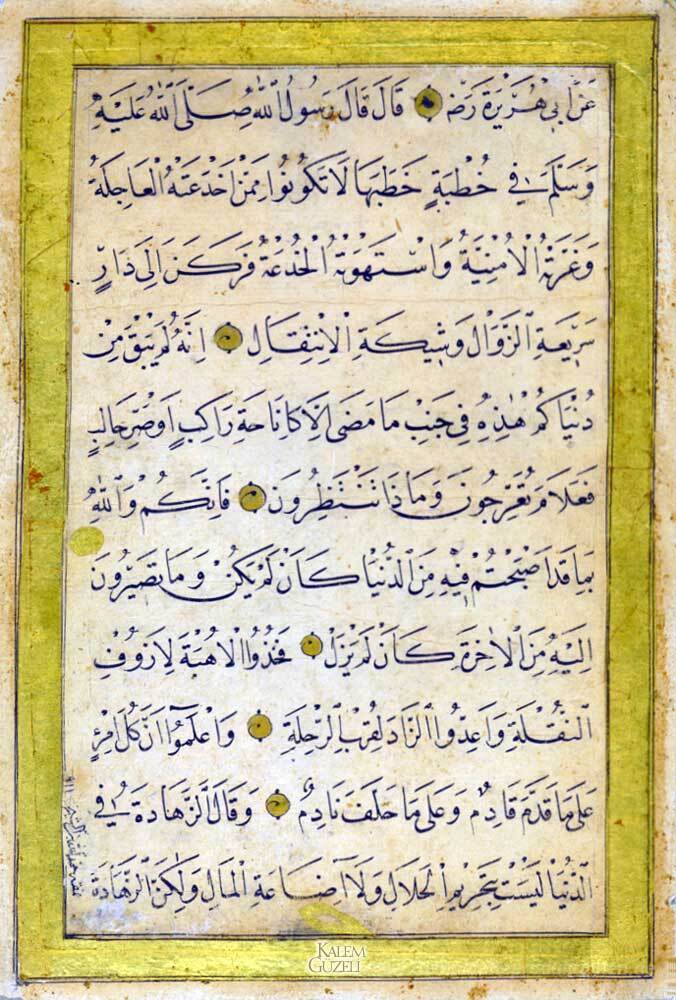 عَنْ اَبِي هُرَيْرَةَ رَضْه قَالَ قَالَ رَسُولُ اللّٰهِ صَلَّى اللّٰهُ عَلَيْهِ
وَسَلَّمَ فِي خُطْبَةٍ خَطَبَهَا لَا تَكُونُوا مِمَّنْ اَخْدَعَتْهُ الْعَاجِلَةُ
وَغَرَّتْهُ الْاُمْنِيَّةُ وَاسْتَهْوَتْهُ الْخُدْعَةُ فَرَكَنَ اِلَى دَارٍ
سَرِيعَةِ الزَّوَالِ وَشِيكَةِ الْاِنْتِقَالِ اِنَّهُ لَمْ يَبْقَ مِنْ
دُنْيَاكُمْ هٰذِهِ فِي جَنْبِ مَا مَضَى اِلَّا كَاِنَاحَةِ رَاكِبٍ اَوْ صَرِّ حَالِبٍ
فَعَلَامَ تُعَرِّجُونَ وَمَاذَا تَنْتَظِرُونَ فَاِنَّكُمْ وَاللّٰهِ
بِمَا قَدْ اَصْبَحْتُمْ فِيهِ مِنَ الدُّنْيَا كَاَنْ لَمْ يَكُنْ وَمَا تَصِيرُونَ
اِلَيْهِ مِنَ الْاٰخِرَةِ كَاَنْ لَمْ يَزَلْ فَخُذُوا الْاُهْبَةَ لِاَزُوفِ
النُّقْلَةِ وَاَعِدُّوا الزَّادَ لِقُرْبِ الرِّحْلَةِ وَاعْلَمُوا اَنَّ كُلَّ امْرِئٍ
عَلَى مَا قَدَّمَ قَادِمٌ وَعَلَى مَا خَلَفَ نَادِمٌ وَقَالَ الزَّهَادَةُ فِي
الدُّنْيَا لَيْسَتْ بِتَحْرِيمِ الْحَلَالِ وَلَا اِضَاعَةِ الْمَالِ وَلٰكِنَّ الزَّهَادَةَ
KALEM
GÜZELİ